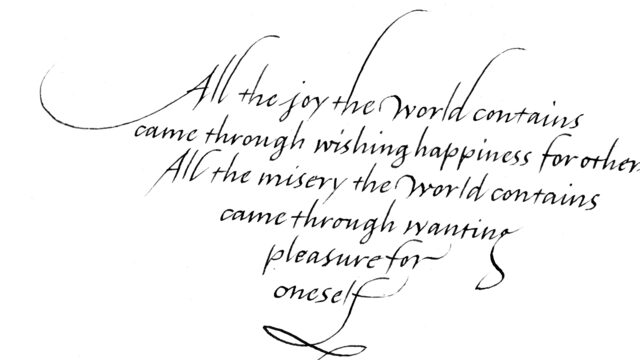 All the joy the World contains
came through wishing happiness for other
All the misery the World contains
came through wanting
pleasure for
oneself